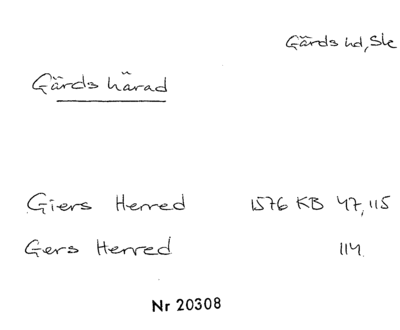 Gärds hd, Sk
Gärds härad
Giers Herred 1576 KB 47, 115
Gers Herred 114
Nr 20308